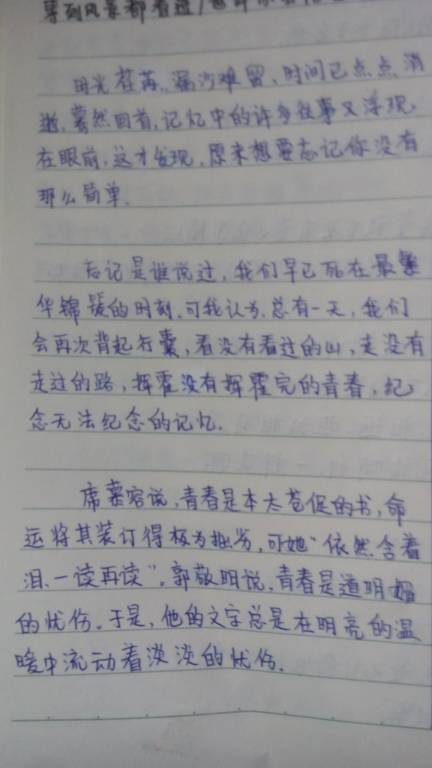 等到风景都看透
时光荏苒，漏沙难留，时间已点点消
逝，蓦然回首，记忆中的许多往事又浮现
在眼前，这才发现，原来想要忘记你没有
那么简单．
忘记是谁说过，我们早已死在最繁
华锦簇的时刻，可我认为，总有一天，我们
会再次背起行囊，看没有看过的山，走没有
走过的路，挥霍没有挥霍完的青春，纪
念无法纪念的记忆．
席慕容说，青春是本太仓促的书，命
运将其装订得极为拙劣，可她“依然含着
泪，一读再读”，郭敬明说，青春是道明媚
的忧伤。于是，他的文字总是在明亮的温
暖中流动着淡淡的忧伤．